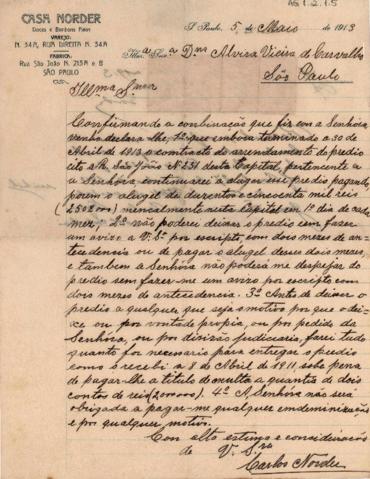 AG 1.2.1.5
CASA NORDER
Doces e Bonbons Finos
VAREJO:
N. 34A, RUA DIREITA N. 34A
FABRICA:
Rua São João N. 215A e B
SÃO PAULO
S. Paulo, 5 de Maio de 1913
Illm.a Snr.a D.na Alvira Vieira de Carvalho
São Paulo
Illma Snra
Confirmando a conbinação que fiz con a Senhora,
venho declara-lhe, 1º que embora terminado a 30 de
Abril de 1913 o contracto de arrendamento do predio
cito a R. São João N. 231 desta Capital, pertencente a
a Senhora continuarei a alugar no predio pagando,
porem o alugel de duzentos e cincoenta mil reis
(250$000) mencalmente nesta Capital en 1º dia de cada
mez. 2º não poderei deixar o predio sem fazer
um aviso a V. Sª por escripto, com dois mezes de an-
tecedensis ou de pagar o alugel desses dois mezes,
e tambem a Senhora não poderá me despejar do
predio sem fazer-me um avizo por escripto com
dois mezes de antecedencia. 3º Antes de deixar o
predio a qualquer que seja o motivo por que o dei-
xe ou por vontade propia, ou por pedido da
Senhóra, ou por divizão judiciaria, farei tudo
quanto for necessario para entregar o predio
como o recebi a 8 de Abril de 1911, sobe pena
de pagar-lhe a titulo de multa a quantia de dois
contos de reis (2000000). 4º A Senhora não será
obrigada a pagar-me qualquer indeminização
e por qualquer motivo.
Con alta estima e consideração
de V. Sra
Carlos Norder